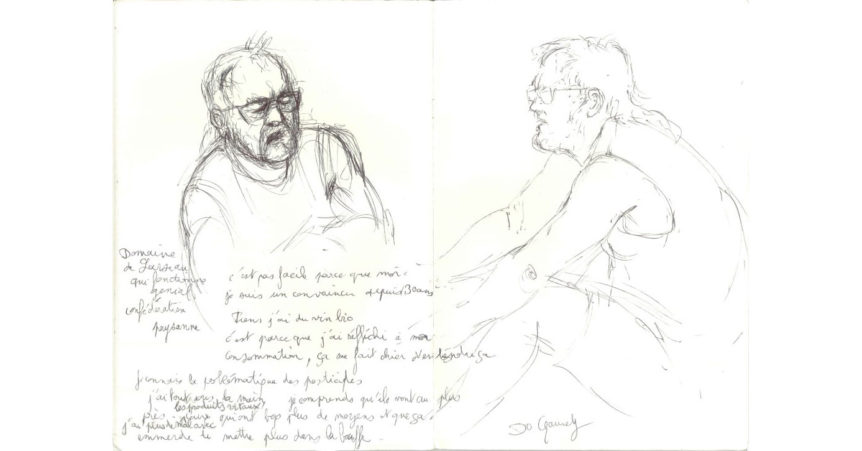 Domaine
de
qui fonctionne
génial
&
confédération
paysanne
c'est pas facile parce que moi
je suis un convaincu depuis 30 ans
Tiens j'ai du vin bio
c'est parce que j'ai réfléchi à ma
consommation, ça me fait chier d'en
J'connais la problématique des pesticides
j'ai tout sous la main je comprends qu'ils vont au plus
les produits
près qui ont pas plus de moyens et que ça
j'ai plus de mal avec
emmerde de mettre plus dans la bouffe.
Do